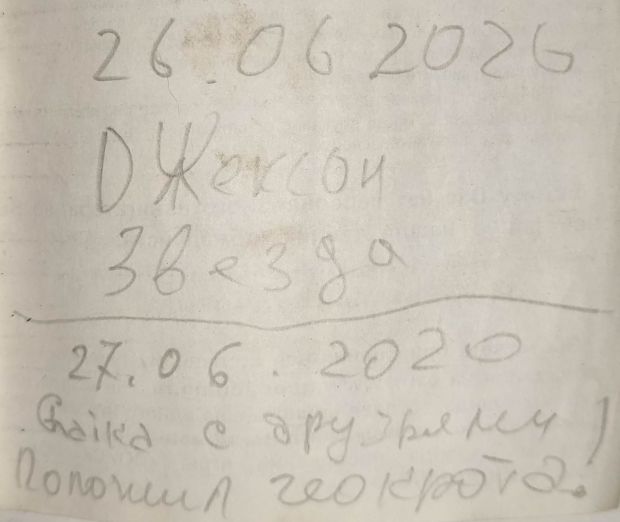 26.06 2026
Джексон
Звезда
27.06.2020
Спайка с друзьями!
Положил геокрота.